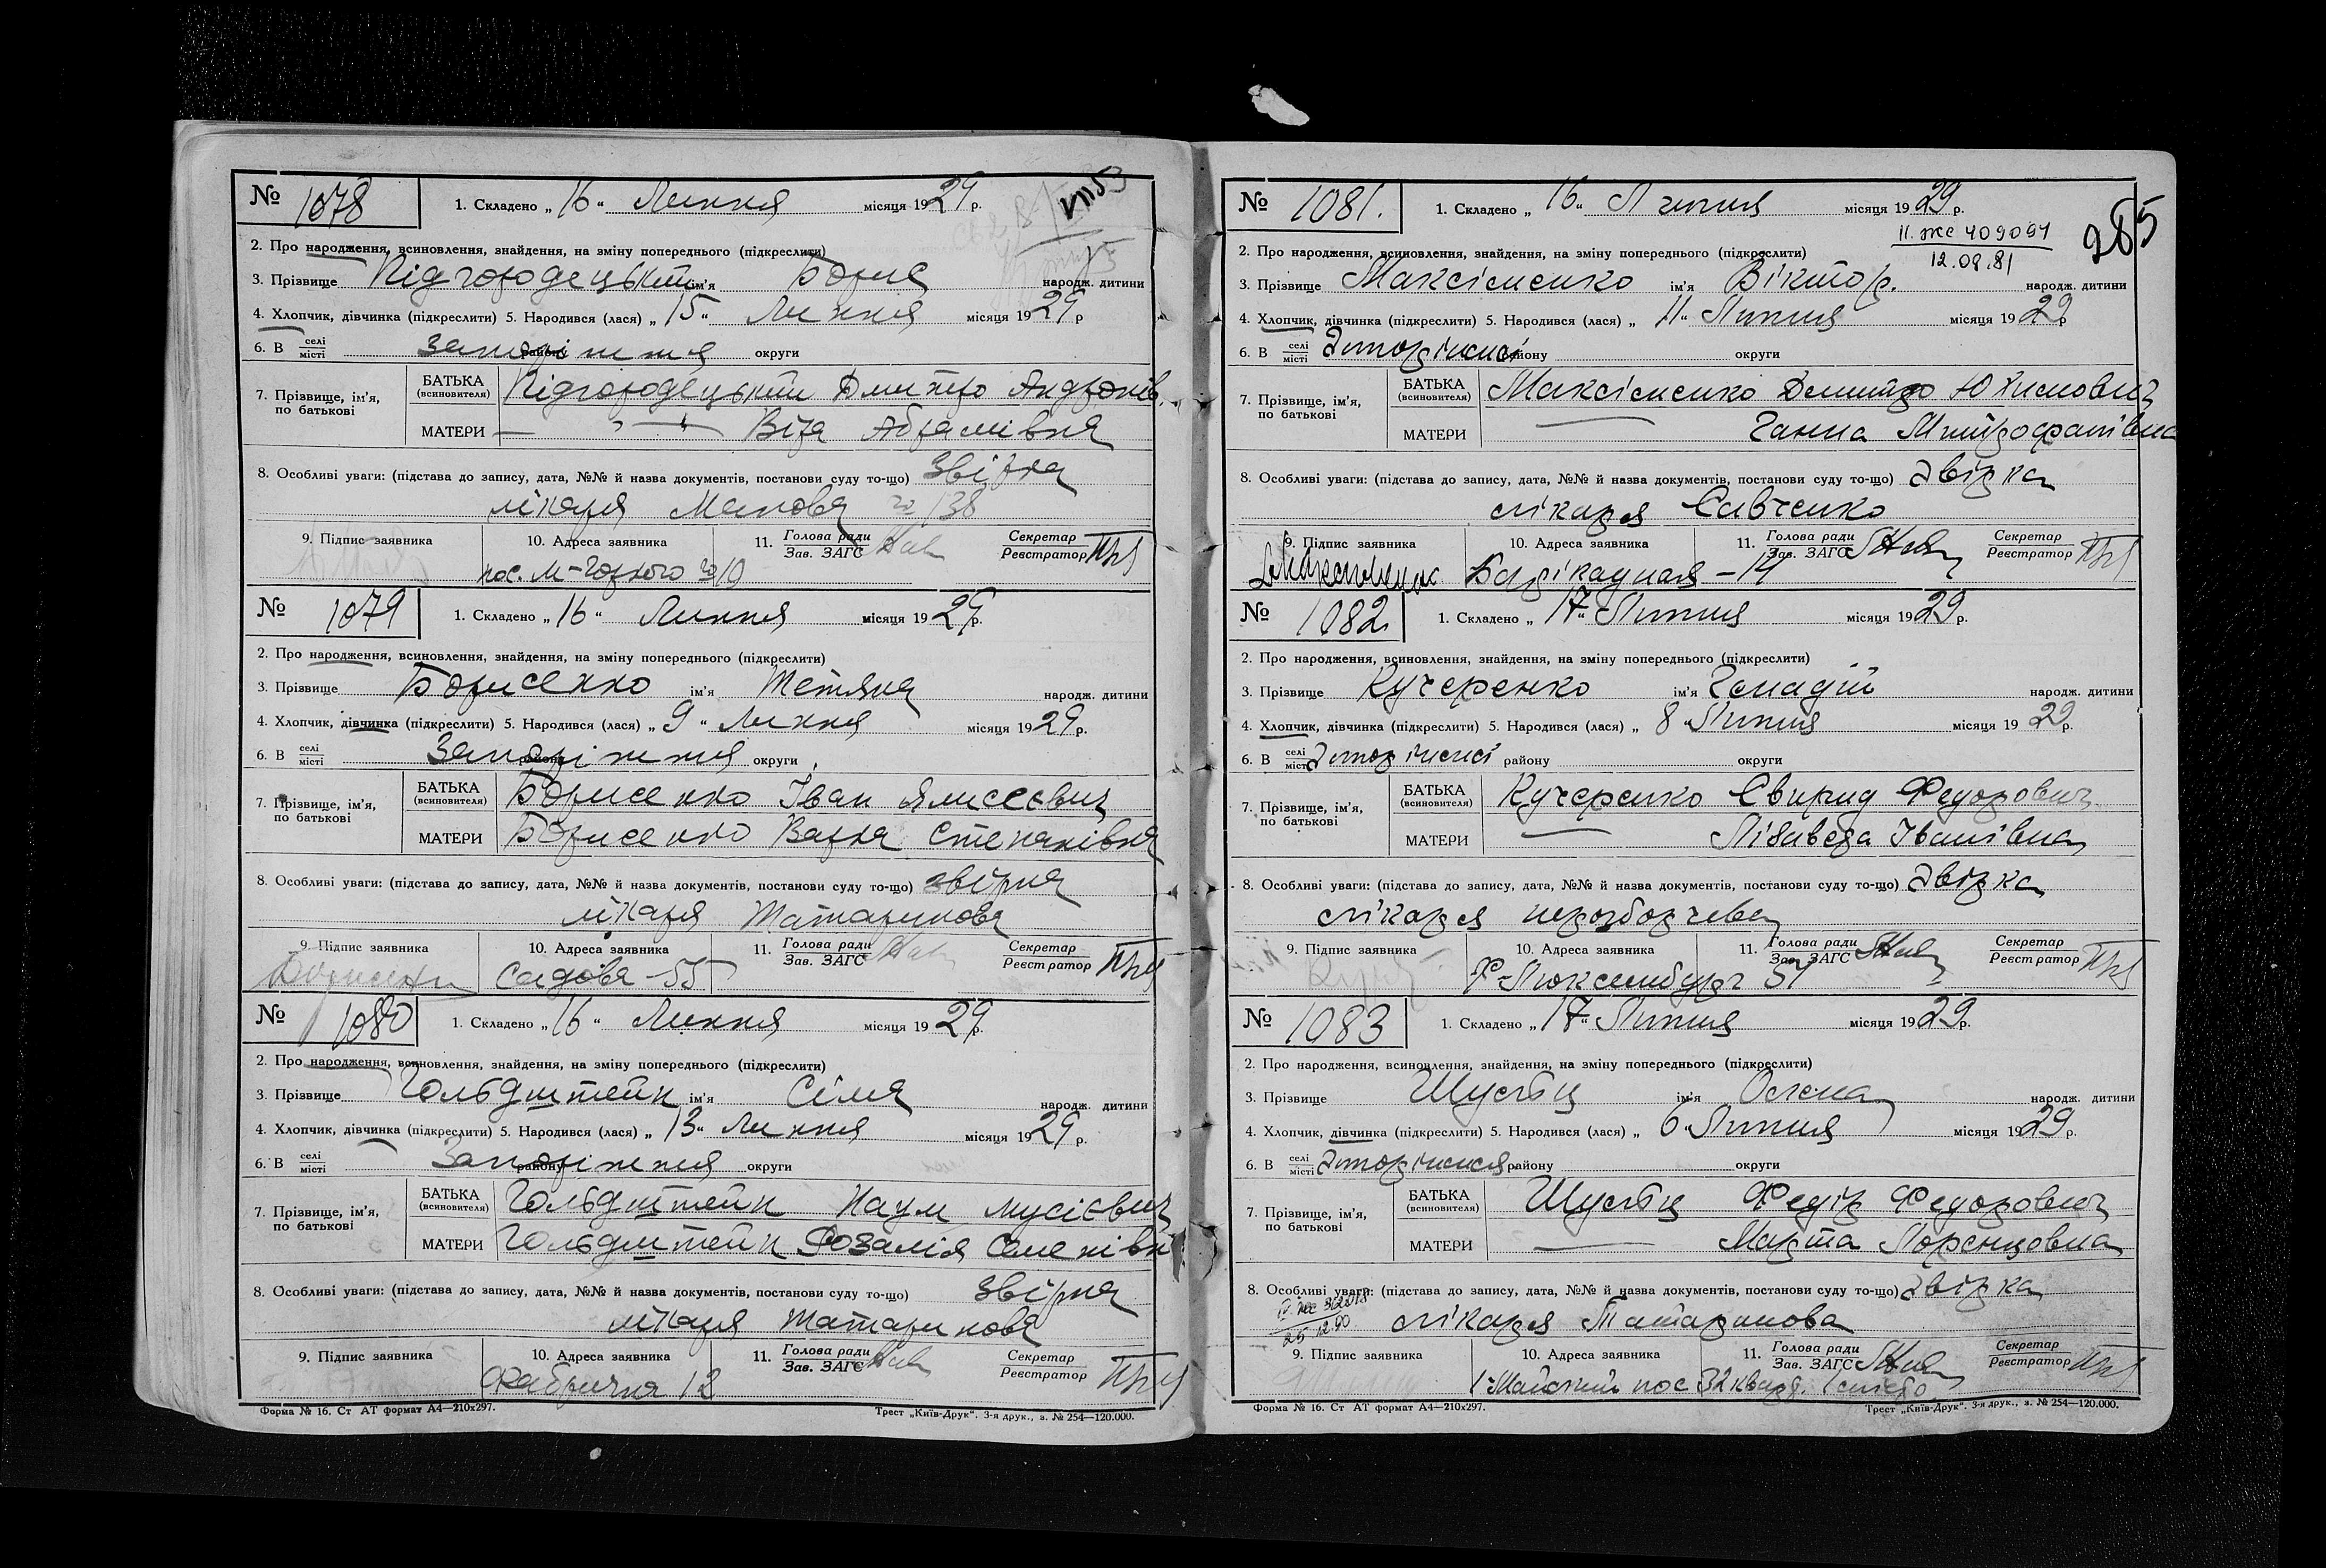 № 1078 1. Складено „16“ Липня місяця 1929 р.
2. Про народження, всиновлення, знайдення, на зміну попереднього (підкреслити)
3. Прізвище Підгородецький ім'я Борис народж. дитини
4. Хлопчик, дівчинка (підкреслити) 5. Народився (лася) „15“ Липня місяця 1929 р.
6. В селі місті Запоріжжя району округи
7. Прізвище, ім'я, по батькові БАТЬКА (всиновителя) Підгородецький Дмитро Андронів.
МАТЕРИ — " — Віра Абрамівна
8. Особливі уваги: (підстава до запису, дата, №№ й назва документів, постанови суду то-що) Звірка
лікаря № 138
9. Підпис заявника 10. Адреса заявника 11. Голова ради Зав. ЗАГС Секретар Реєстратор
пос. М-Горького № 19
№ 1079 1. Складено „16“ Липня місяця 1929 р.
2. Про народження, всиновлення, знайдення, на зміну попереднього (підкреслити)
3. Прізвище Борисенко ім'я Тетяна народж. дитини
4. Хлопчик, дівчинка (підкреслити) 5. Народився (лася) „9“ Липня місяця 1929 р.
6. В селі місті Запоріжжя району округи
7. Прізвище, ім'я, по батькові БАТЬКА (всиновителя) Борисенко Іван Ялисеєвич
МАТЕРИ Борисенко Варка Степанівна
8. Особливі уваги: (підстава до запису, дата, №№ й назва документів, постанови суду то-що) звірка
лікаря Татаринова
9. Підпис заявника 10. Адреса заявника 11. Голова ради Зав. ЗАГС Секретар Реєстратор
Садова - 55
№ 1080 1. Складено „16“ Липня місяця 1929 р.
2. Про народження, всиновлення, знайдення, на зміну попереднього (підкреслити)
3. Прізвище Гольдштейн ім'я Сіма народж. дитини
4. Хлопчик, дівчинка (підкреслити) 5. Народився (лася) „13“ Липня місяця 1929 р.
6. В селі місті Запоріжжя району округи
7. Прізвище, ім'я, по батькові БАТЬКА (всиновителя) Гольдштейн Наум Мусієвич
МАТЕРИ Гольдштейн Розалія Семенівн
8. Особливі уваги: (підстава до запису, дата, №№ й назва документів, постанови суду то-що) Звірка
лікаря Татаринова
9. Підпис заявника 10. Адреса заявника 11. Голова ради Зав. ЗАГС Секретар Реєстратор
Фабрична 12
Форма № 16. Ст АТ формат А4—210х297. Трест „Київ-Друк“. 3-я друк., з. № 254—120.000.
285
№ 1081. 1. Складено „16“ Липня місяця 1929 р.
II. жс 409091
12.09.81
2. Про народження, всиновлення, знайдення, на зміну попереднього (підкреслити)
3. Прізвище Максіменко ім'я Віктор. народж. дитини
4. Хлопчик, дівчинка (підкреслити) 5. Народився (лася) „11“ Липня місяця 1929 р.
6. В селі місті Запоріжжі району округи
7. Прізвище, ім'я, по батькові БАТЬКА (всиновителя) Максіменко Дмитро Юхимович
МАТЕРИ — Ганна Митрофанівна
8. Особливі уваги: (підстава до запису, дата, №№ й назва документів, постанови суду то-що) Звірка
лікаря Савченко
9. Підпис заявника 10. Адреса заявника 11. Голова ради Зав. ЗАГС Секретар Реєстратор
Барікадная - 14
№ 1082 1. Складено „17“ Липня місяця 1929 р.
2. Про народження, всиновлення, знайдення, на зміну попереднього (підкреслити)
3. Прізвище Кучеренко ім'я Генадій народж. дитини
4. Хлопчик, дівчинка (підкреслити) 5. Народився (лася) „8“ Липня місяця 1929 р.
6. В селі місті Запоріжжі району округи
7. Прізвище, ім'я, по батькові БАТЬКА (всиновителя) Кучеренко Свирид Федорович
МАТЕРИ — Лізаведа Іванівна
8. Особливі уваги: (підстава до запису, дата, №№ й назва документів, постанови суду то-що) Звірка
лікаря нерозборчева
9. Підпис заявника 10. Адреса заявника 11. Голова ради Зав. ЗАГС Секретар Реєстратор
Р-Люксембург 37
№ 1083 1. Складено „17“ Липня місяця 1929 р.
2. Про народження, всиновлення, знайдення, на зміну попереднього (підкреслити)
3. Прізвище ім'я Олена народж. дитини
4. Хлопчик, дівчинка (підкреслити) 5. Народився (лася) „6“ Липня місяця 1929 р.
6. В селі місті Запоріжжя району округи
7. Прізвище, ім'я, по батькові БАТЬКА (всиновителя) Федір Федорович
МАТЕРИ — Марта Лоренцовна
8. Особливі уваги: (підстава до запису, дата, №№ й назва документів, постанови суду то-що) Звірка
лікаря Татаринова
9. Підпис заявника 10. Адреса заявника 11. Голова ради Зав. ЗАГС Секретар Реєстратор
1-Майский пос 32 кварт.
Форма № 16. Ст АТ формат А4—210х297. Трест „Київ-Друк“. 3-я друк., з. № 254—120.000.